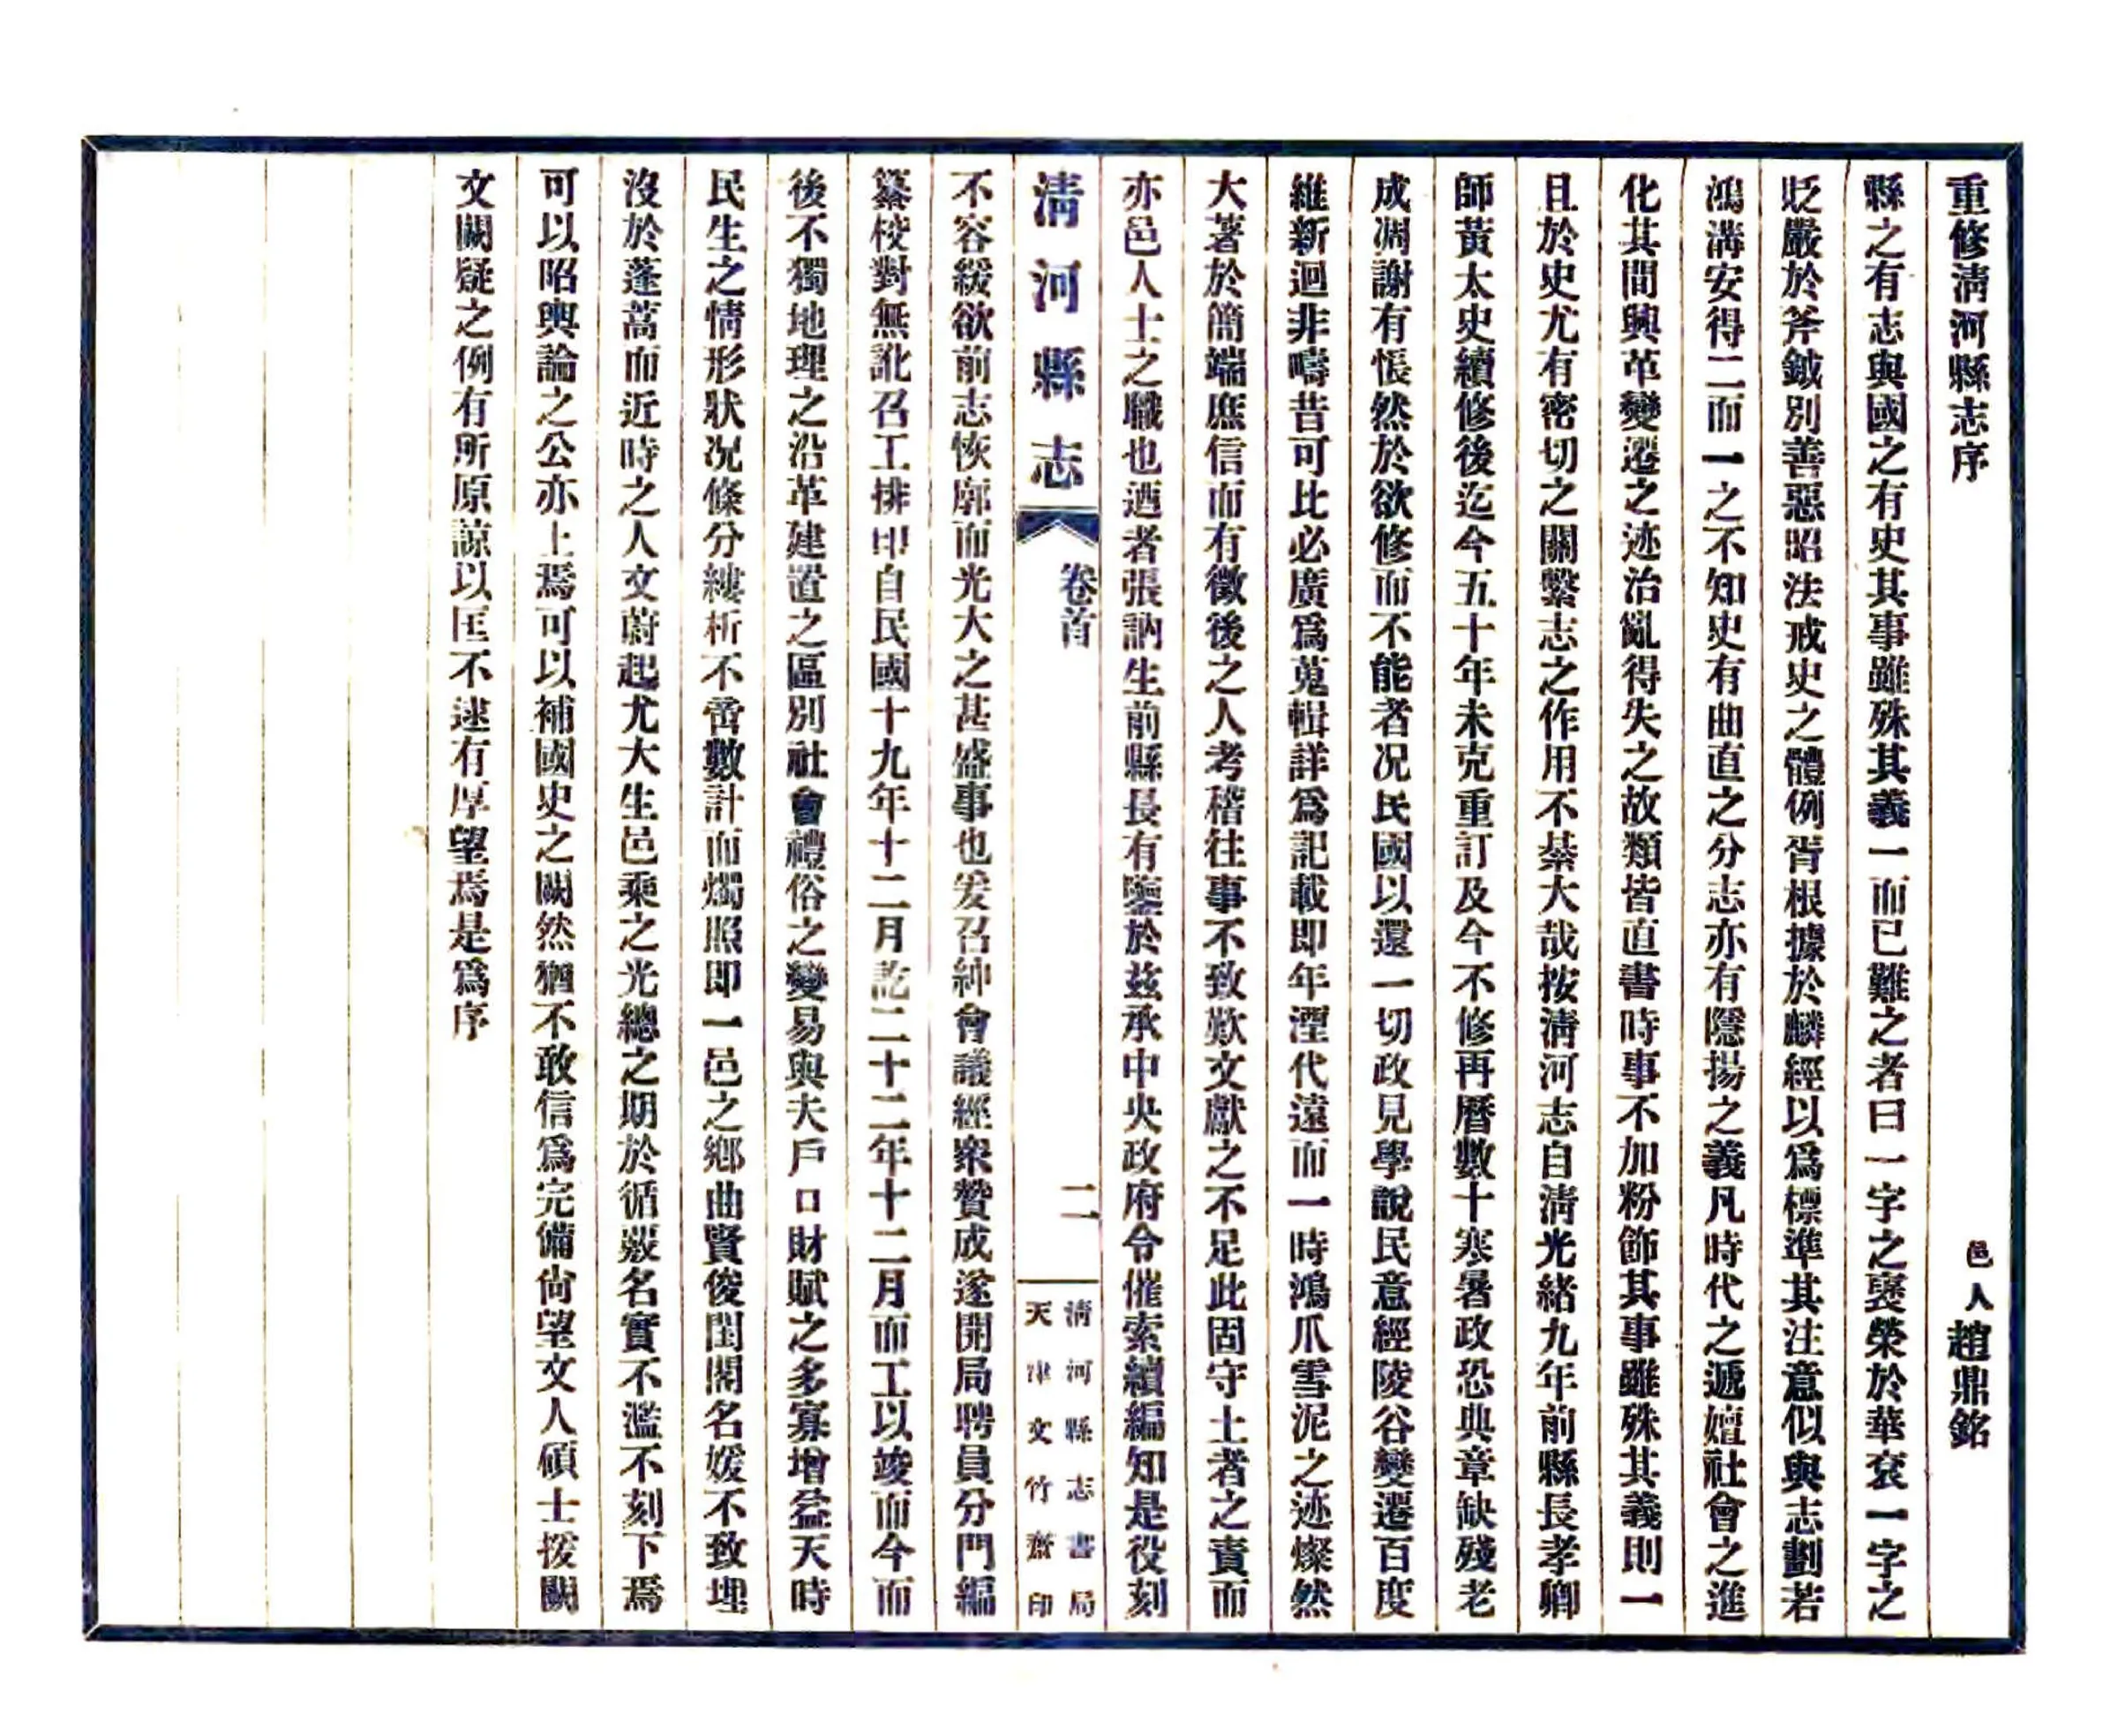 重修淸河縣志序
邑人趙鼎銘
縣之有志與國之有史其事雖殊其義一而已難之者曰一字之褒榮於華衮一字之
貶嚴於斧鉞別善惡昭法戒史之體例胥根據於麟經以爲標準其注意似與志劃若
鴻溝安得二而一之不知史有曲直之分志亦有隱揚之義凡時代之遞嬗社會之進
化其間興革變遷之迹治亂得失之故類皆直書時事不加粉飾其事雖殊其義則一
且於史尤有密切之關繫志之作用不綦大哉按淸河志自淸光緒九年前縣長孝卿
師黃太史續修後迄今五十年未克重訂及今不修再曆數十寒暑政恐典章缺殘老
成凋謝有悵然於欲修而不能者况民國以還一切政見學說民意經陵谷變遷百度
維新迴非疇昔可比必廣爲蒐輯詳爲記載即年湮代遠而一時鴻爪雪泥之迹燦然
大著於簡端庶信而有徵後之人考稽往事不致歎文獻之不足此固守土者之責而
亦邑人士之職也迺者張訥生前縣長有鑒於茲承中央政府令催索續編知是役刻
淸河縣志
卷首
二
淸河縣志書局
天津文竹齋印
不容緩欲前志恢廓而光大之甚盛事也爰召紳會議經衆贊成遂開局聘員分門編
纂校對無訛召工排印自民國十九年十二月訖二十二年十二月而工以竣而今而
後不獨地理之沿革建置之區別社會禮俗之變易與夫戶口財賦之多寡增益天時
民生之情形狀况條分縷析不啻數計而燭照即一邑之鄉曲賢俊閨閣名媛不致埋
沒於蓬蒿而近時之人文蔚起尤大生邑乘之光總之期於循覈名實不濫不刻下焉
可以昭輿論之公亦上焉可以補國史之闕然猶不敢信爲完備尙望文人碩士援闕
文闕疑之例有所原諒以匡不逮有厚望焉是爲序